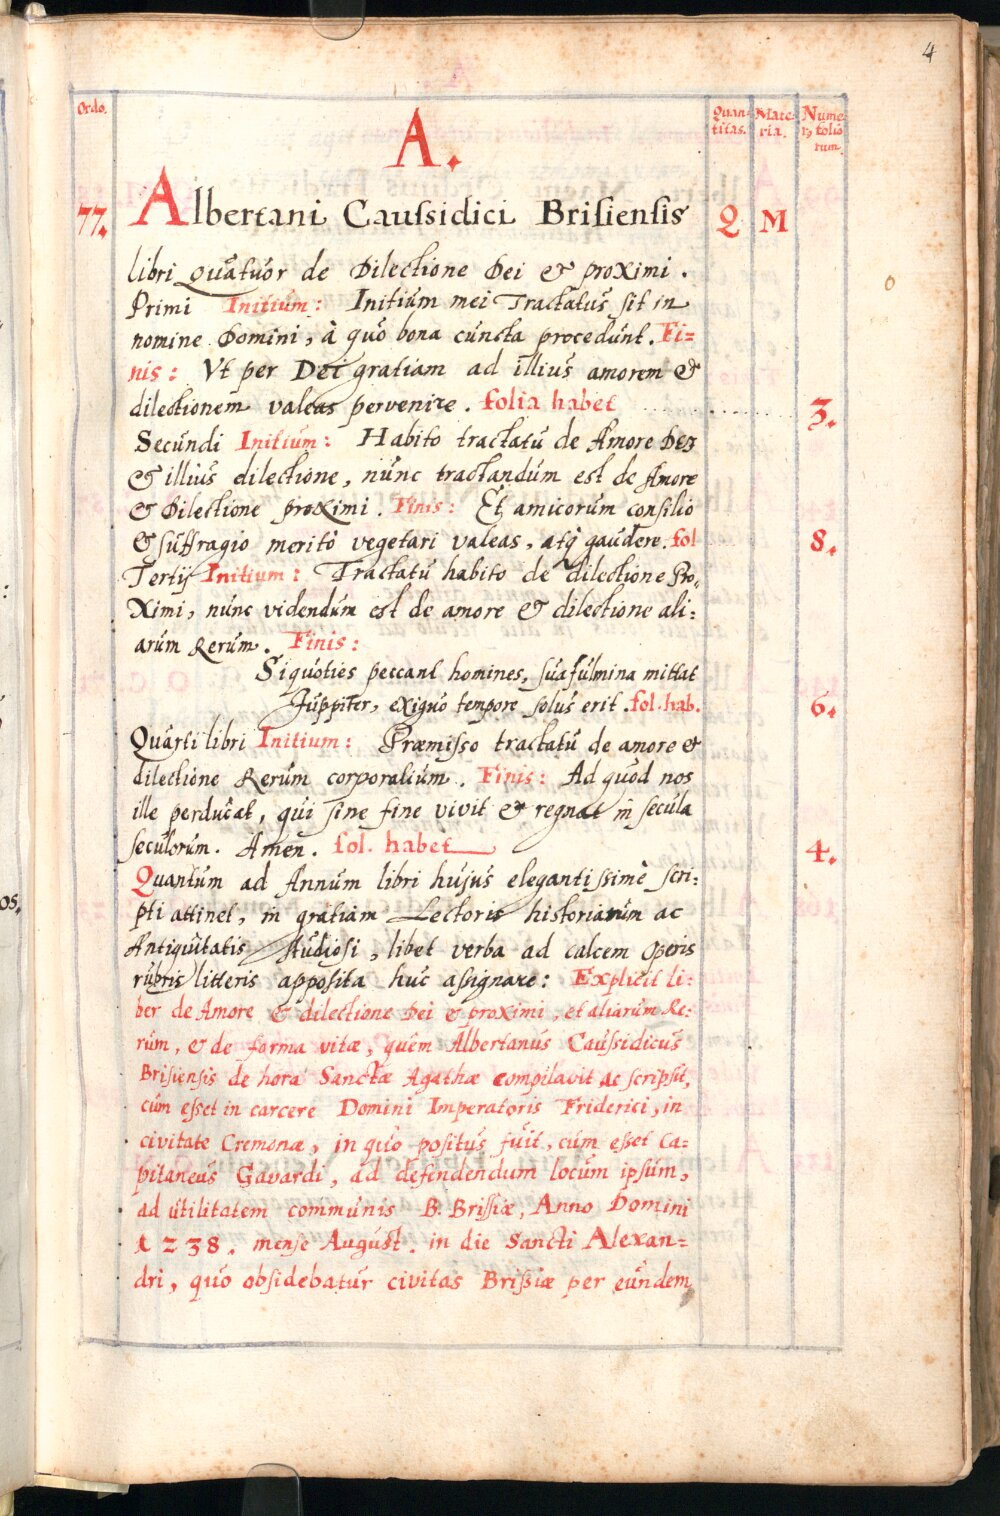 4
Ordo.
Quan-
titas.
Mate-
ria.
Nume-
rꝰ folio
rum.
A.
77. Albertani Caussidici Brisiensis Q M
libri quatuor de Dilectione Dei & proximi.
Primi Initium: Initium mei Tractatus sit in
nomine Domini, à quo bona cuncta procedunt. Fi=
nis: Vt per Dei gratiam ad illius amorem &
dilectionem valeas pervenire. folia habet 3.
Secundi Initium: Habito tractatu de Amore Dei
& illius dilectione, nunc tractandum est de Amore
& Dilectione proximi. Finis: Et amicorum consilio
& suffragio meritò vegetari valeas, atq̀ gaudere. fol 8.
Tertij Initium: Tractatu habito de dilectione Pro,
ximi, nunc videndum est de amore & dilectione ali:
arum Rerum. Finis:
Si quoties peccant homines, sua fulmina mittat
Juppiter, exiguo tempore solus erit. fol. hab. 6.
Quarti libri Initium: Præmisso tractatu de amore &
dilectione Rerum corporalium. Finis: Ad quod nos
ille perducat, qui sine fine vivit & regnat in secula
seculorum. Amen. fol. habet 4.
Quantum ad Annum libri hujus elegantissimè scri:
pti attinet, in gratiam Lectoris historiarum ac
Antiquitatis studiosi, libet verba ad calcem Operis
rubris litteris apposita huc assignare: Explicit li:
ber de Amore & dilectione Dei & proximi, et aliarum Re:
rum, & de forma vitæ, quem Albertanus Caussidicus
Brisiensis de hora Sanctæ Agathæ compilavit ac scripsit,
cum esset in carcere Domini Imperatoris Friderici, in
civitate Cremonæ, in quo positus fuit, cum esset Ca=
pitaneus Gavardi, ad defendendum locum ipsum,
ad utilitatem communis B. Brissiæ, Anno Domini
1238. mense August. in die Sancti Alexan=
dri, quo obsidebatur civitas Brissiæ per eundem